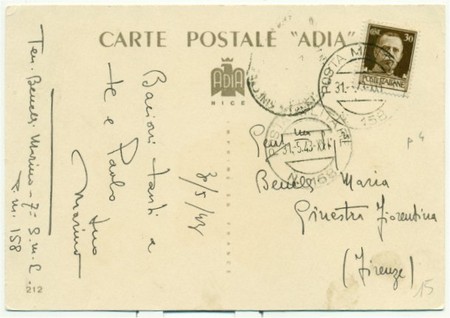 CARTE POSTALE "ADIA"
ADIA
NICE
30
POSTE ITALIANE
POSTA MILITARE
31.5.43.XXI
N. 158
Ten. Marino - 7°
P.M. 158
Bacioni tanti a
te e Paolo tuo
Marino
30/5/43
Gent.ma
Maria
Ginestra Fiorentina
(Firenze)
p 4
15
212